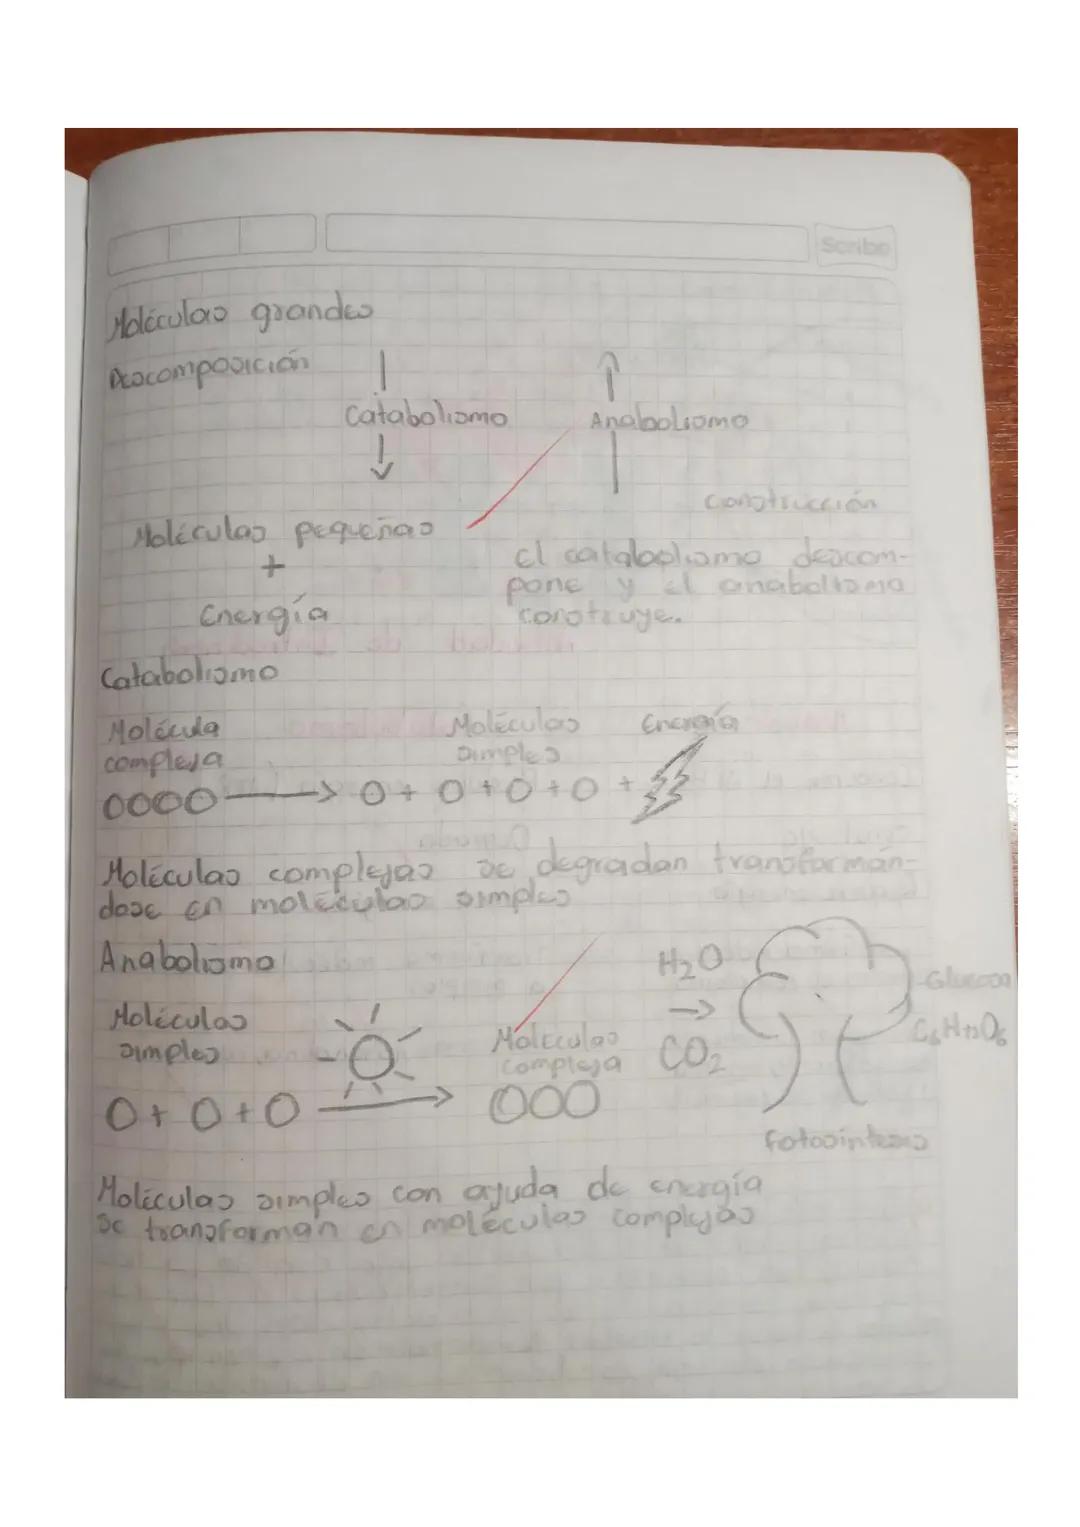 Scribe
Moléculas grandes
Descomposición
Catabolismo
Anabolismo
Construcción
Moléculas pequeñas
+
Energía
El catabolismo descom-
pone y el anabolismo
construye.
Catabolismo
Molécula
compleja
Moléculas
simples
Energía
OOOO → O + O + O + O +
Moléculas complejas se degradan transformán-
dose en moléculas simples
Anabolismo
Moléculas
simples
O + O + O → OOO
Moléculas
compleja
H2O
→
CO2
Glucosa
C6H12O6
fotosíntesis
Moléculas simples con ayuda de energía
se transforman en moléculas complejas